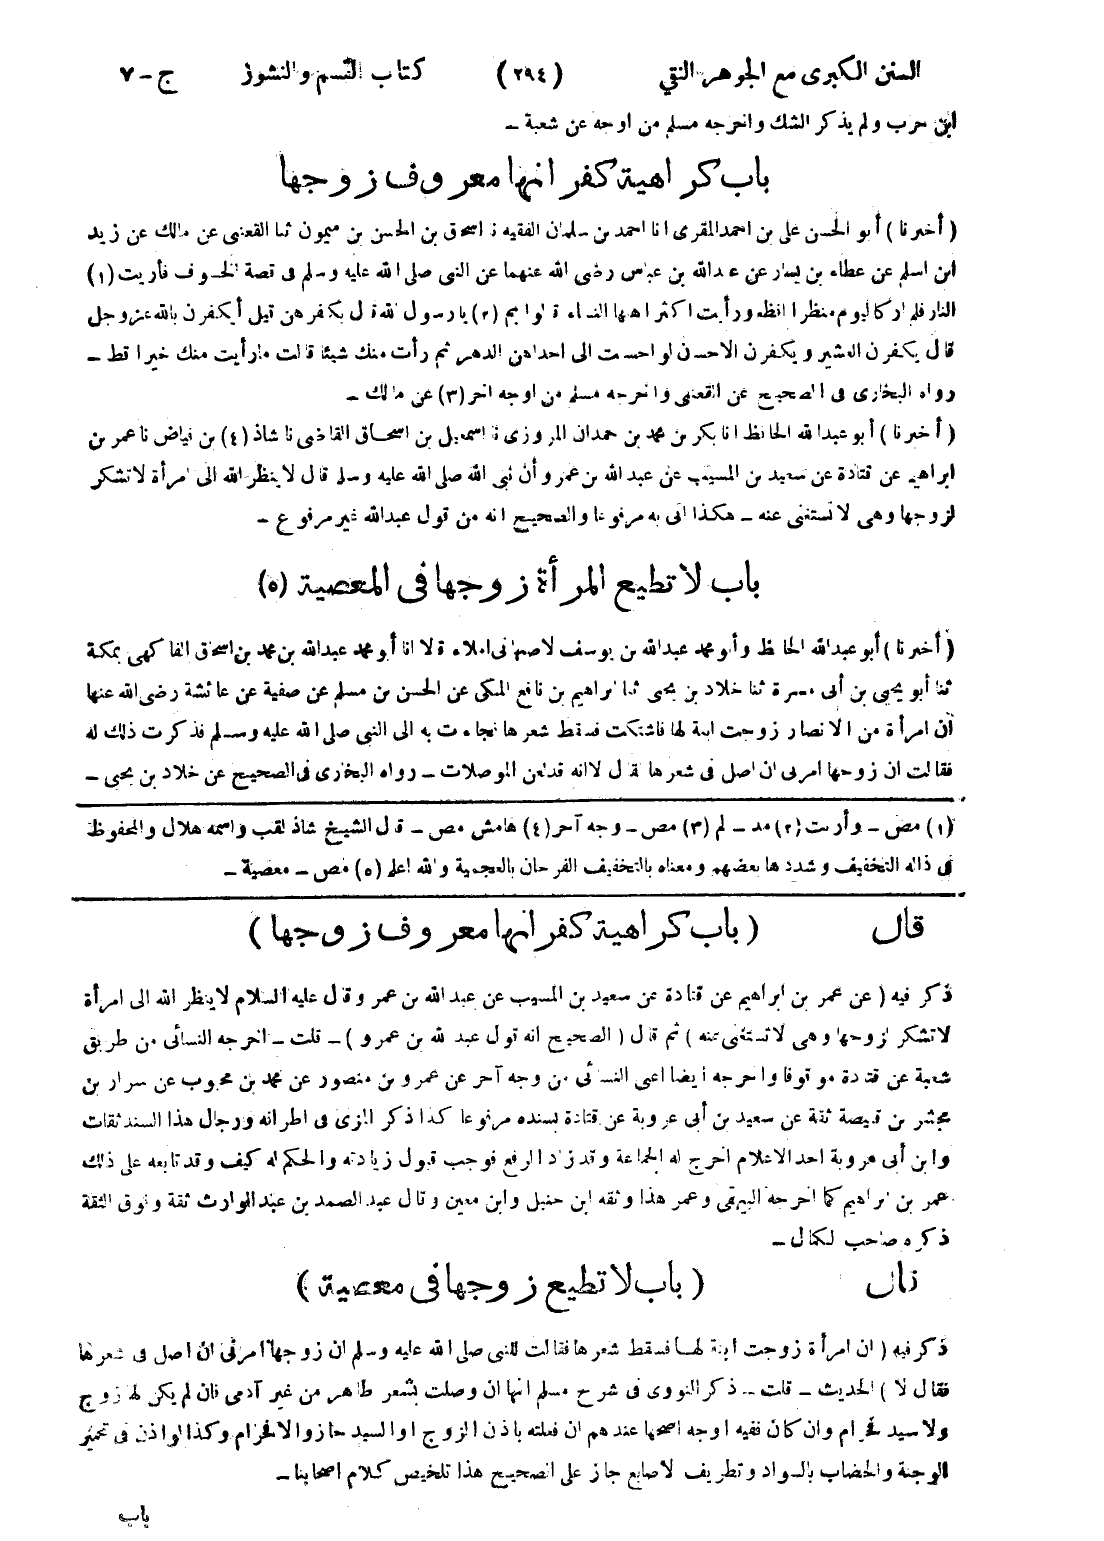 السنن الكبرى مع الجوهر النقي (٢٩٤) كتاب القسم والنشوز ج-٧
ابن حرب ولم يذكر الشك واخرجه مسلم من اوجه عن شعبة ـ
باب كراهية كفرانها معروف زوجها
(أخبرنا) أبو الحسن على بن احمد المقرى انا احمد بن سلمان الفقيه نا اسحاق بن الحسن بن ميمون ثنا القعنبى عن مالك عن زيد
ابن اسلم عن عطاء بن يسار عن عبدالله بن عباس رضى الله عنهما عن النبى صلى الله عليه وسلم فى قصة الخسوف فأريت (١)
النار فلم ار كاليوم منظرا افظع ورأيت اكثر اهلها النساء قالوا بم (٢) يا رسول الله قال بكفرهن قيل أيكفرن بالله عزوجل
قال يكفرن العشير ويكفرن الاحسن لو احسنت الى احداهن الدهر ثم رأت منك شيئا قالت ما رأيت منك خيرا قط ـ
رواه البخارى فى الصحيح عن القعنبى واخرجه مسلم من اوجه اخر (٣) عن مالك ـ
(أخبرنا) أبو عبدالله الحافظ انا بكر بن محمد بن حمدان المروزى نا اسمعيل بن اسحاق القاضى نا شاذ (٤) بن فياض نا عمر بن
ابراهيم عن قتادة عن سعيد بن المسيب عن عبدالله بن عمرو أن نبى الله صلى الله عليه وسلم قال لا ينظر الله الى امرأة لا تشكر
لزوجها وهى لا تستغنى عنه ـ هكذا اتى به مرفوعا والصحيح انه من قول عبدالله غير مرفوع ـ
باب لا تطيع المرأة زوجها فى المعصية (٥)
(أخبرنا) أبو عبدالله الحافظ وأبو محمد عبدالله بن يوسف الاصبهانى املاء قالا انا أبو محمد عبدالله بن محمد بن اسحاق الفاكهى بمكة
ثنا أبو يحيى بن أبى مسرة ثنا خلاد بن يحيى ثنا ابراهيم بن نافع المكى عن الحسن بن مسلم عن صفية عن عائشة رضى الله عنها
أن امرأة من الانصار زوجت ابنة لها فاشتكت فسقط شعرها فجاءت به الى النبى صلى الله عليه وسلم فذكرت ذلك له
فقالت ان زوجها امرنى ان اصل فى شعرها قال لا انه قد لعن الموصلات ـ رواه البخارى فى الصحيح عن خلاد بن يحيى ـ
(١) مص ـ وأريت (٢) مد ـ لم (٣) مص ـ وجه آخر (٤) هامش مص ـ قال الشيخ شاذ لقب واسمه هلال والمحفوظ
فى ذاله التخفيف وشددها بعضهم ومعناه بالتخفيف الفرحان بالعجمية والله اعلم (٥) مص ـ معصية ـ
قال (باب كراهية كفرانها معروف زوجها)
ذكر فيه (عن عمر بن ابراهيم عن قتادة عن سعيد بن المسيب عن عبدالله بن عمرو قال عليه السلام لا ينظر الله الى امرأة
لا تشكر لزوجها وهى لا تستغنى عنه) ثم قال (الصحيح انه قول عبدالله بن عمرو) ـ قلت ـ اخرجه النسائى من طريق
شعبة عن قتادة موقوفا واخرجه أيضا اعنى النسائى من وجه آخر عن عمرو بن منصور عن محمد بن محبوب عن سرار بن
مجشر بن قبيصة ثقة عن سعيد بن أبى عروبة عن قتادة بسنده مرفوعا كذا ذكر المزى فى اطرافه ورجال هذا السند ثقات
وابن أبى عروبة احد الاعلام اخرج له الجماعة وقد زاد الرفع فوجب قبول زيادته والحكم له كيف وقد تابعه على ذلك
عمر بن ابراهيم كما اخرجه البيهقى وعمر هذا وثقه ابن حنبل وابن معين وقال عبد الصمد بن عبد الوارث ثقة وفوق الثقة
ذكره صاحب الكمال ـ
قال (باب لا تطيع زوجها فى معصية)
ذكر فيه (ان امرأة زوجت ابنة لها فسقط شعرها فقالت للنبى صلى الله عليه وسلم ان زوجها امرنى ان اصل فى شعرها
فقال لا) الحديث ـ قلت ـ ذكر النووى فى شرح مسلم انها ان وصلت بشعر طاهر من غير آدمى فان لم يكن لها زوج
ولا سيد فحرام وان كان ففيه اوجه اصحها عندهم ان فعلته باذن الزوج او السيد جاز والا فحرام وكذا لو اذن فى تحمير
الوجنة والخضاب بالسواد وتطريف الاصابع جاز على الصحيح هذا تلخيص كلام اصحابنا ـ
باب